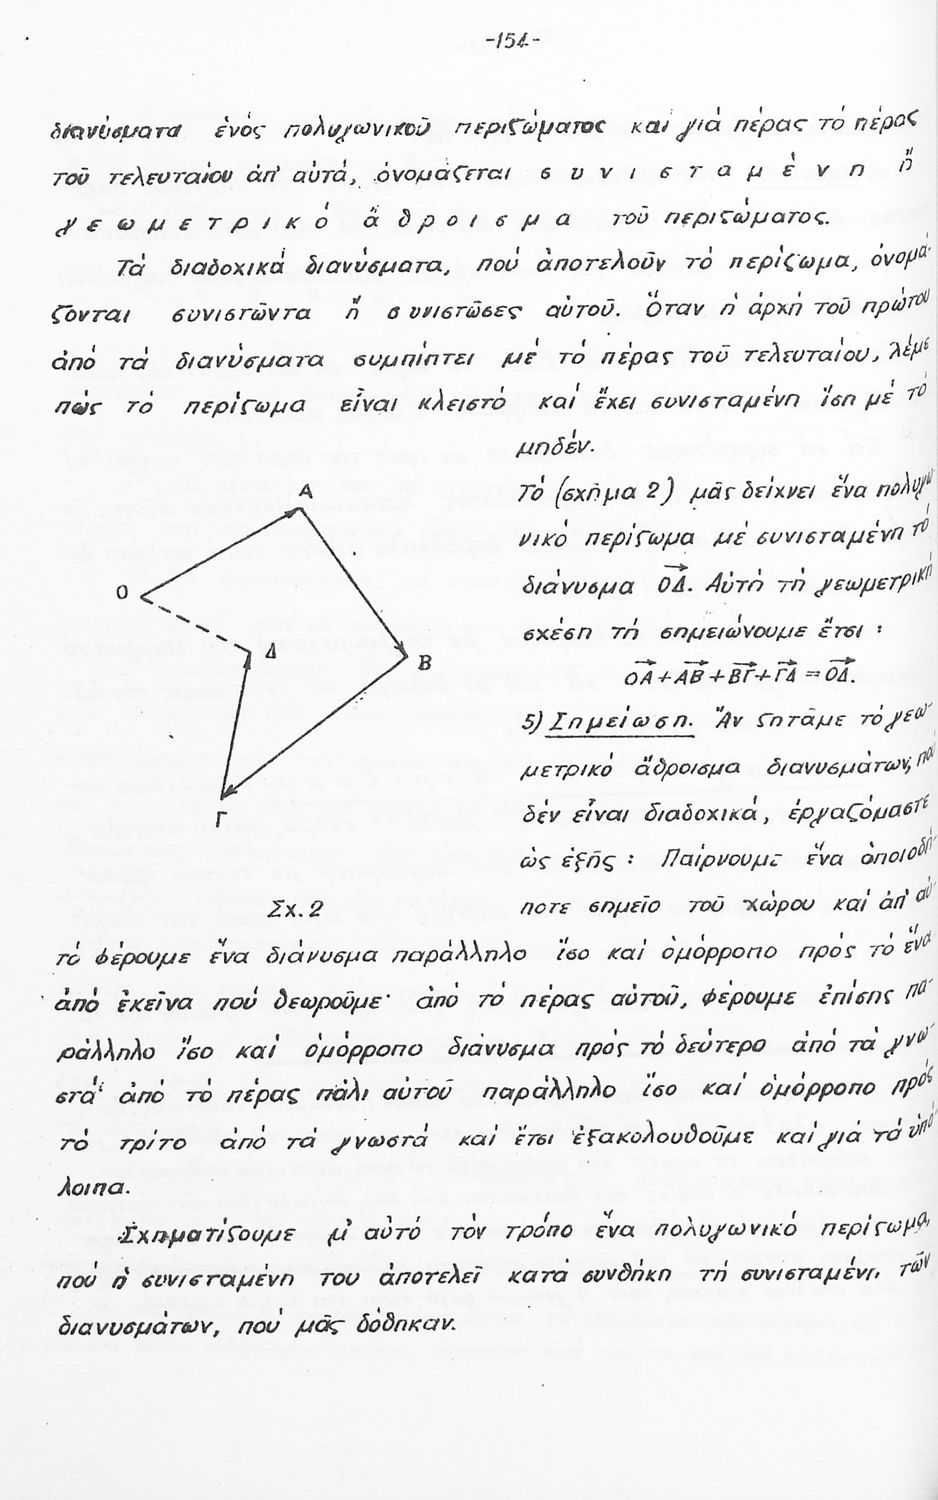 -154-
διανύσματα ἑνός πολυγωνικοῦ περιζώματος καί γιά πέρας τό πέρας
τοῦ τελευταίου ἀπ' αὐτά, ὀνομάζεται σ υ ν ι σ τ α μ έ ν η ἤ
γ ε ω μ ε τ ρ ι κ ό ἄ θ ρ ο ι σ μ α τοῦ περιζώματος.
Τά διαδοχικά διανύσματα, πού ἀποτελοῦν τό περίζωμα, ὀνομά-
ζονται συνιστῶντα ἤ συνιστῶσες αὐτοῦ. Ὅταν ἡ ἀρχή τοῦ πρώτου
ἀπό τά διανύσματα συμπίπτει μέ τό πέρας τοῦ τελευταίου, λέμε
πώς τό περίζωμα εἶναι κλειστό καί ἔχει συνισταμένη ἴση μέ τό
μηδέν.
Τό (σχῆμα 2) μᾶς δείχνει ἕνα πολυγω
νικό περίζωμα μέ συνισταμένη τό
διάνυσμα ΟΔ. Αὐτή τή γεωμετρική
σχέση τή σημειώνουμε ἔτσι :
ΟΑ+ΑΒ+ΒΓ+ΓΔ=ΟΔ.
5) Σημείωση. Ἄν ζητᾶμε τό γεω-
μετρικό ἄθροισμα διανυσμάτων, πού
δέν εἶναι διαδοχικά, ἐργαζόμαστε
ὡς ἑξῆς : Παίρνουμε ἕνα ὁποιοδή-
ποτε σημεῖο τοῦ χώρου καί ἀπ' αὐ-
Α
Ο
Δ
Β
Γ
Σχ. 2
τό φέρουμε ἕνα διάνυσμα παράλληλο ἴσο καί ὁμόρροπο πρός τό ἕνα
ἀπό ἐκεῖνα πού θεωροῦμε· ἀπό τό πέρας αὐτοῦ, φέρουμε ἐπίσης πα-
ράλληλο ἴσο καί ὁμόρροπο διάνυσμα πρός τό δεύτερο ἀπό τά γνω-
στά· ἀπό τό πέρας πάλι αὐτοῦ παράλληλο ἴσο καί ὁμόρροπο πρός
τό τρίτο ἀπό τά γνωστά καί ἔτσι ἐξακολουθοῦμε καί γιά τά ὑπό
λοιπα.
Σχηματίζουμε μ' αὐτό τόν τρόπο ἕνα πολυγωνικό περίζωμα,
πού ἡ συνισταμένη του ἀποτελεῖ κατά συνθήκη τή συνισταμένη τῶν
διανυσμάτων, πού μᾶς δόθηκαν.